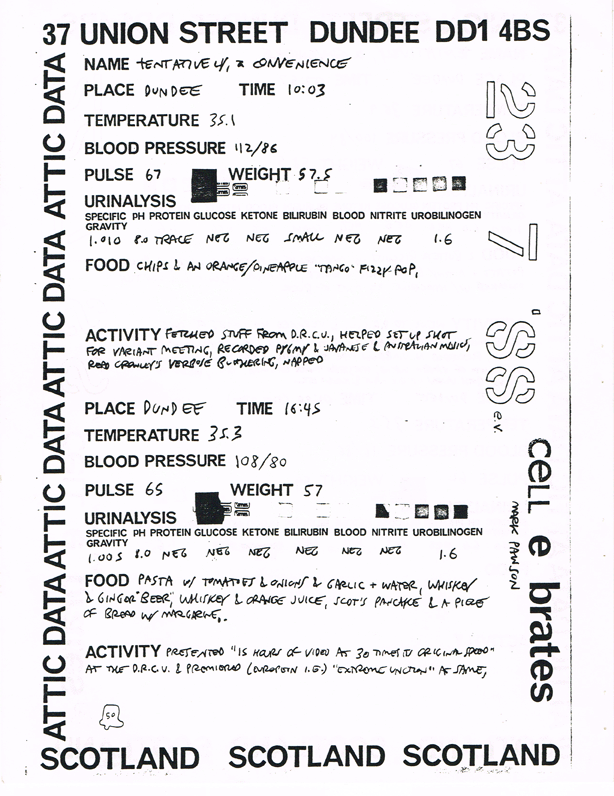 37 UNION STREET DUNDEE DD1 4BS
ATTIC DATA ATTIC DATA ATTIC DATA ATTIC DATA ATTIC DATA
NAME TENTATIVELY, A CONVENIENCE
PLACE DUNDEE TIME 10:03
TEMPERATURE 35.1
BLOOD PRESSURE 112/86
PULSE 67 WEIGHT 57.5
URINALYSIS
SPECIFIC PH PROTEIN GLUCOSE KETONE BILIRUBIN BLOOD NITRITE UROBILINOGEN
GRAVITY
1.010 8.0 TRACE NEG NEG SMALL NEG NEG 1.6
FOOD CHIPS & AN ORANGE/PINEAPPLE "TANGO" FIZZY POP,
ACTIVITY FETCHED STUFF FROM D.R.C.U., HELPED SET UP SHOT
FOR VARIANT MEETING, RECORDED PYGMY & JAVANESE & AUSTRALIAN MUSICS,
READ CROWLEY'S VERBOSE BLATHERING, NAPPED
PLACE DUNDEE TIME 16:45
TEMPERATURE 35.3
BLOOD PRESSURE 108/80
PULSE 65 WEIGHT 57
URINALYSIS
SPECIFIC PH PROTEIN GLUCOSE KETONE BILIRUBIN BLOOD NITRITE UROBILINOGEN
GRAVITY
1.005 8.0 NEG NEG NEG NEG NEG NEG 1.6
FOOD PASTA W/ TOMATOES & ONIONS & GARLIC + WATER, WHISKEY
& GINGER "BEER", WHISKEY & ORANGE JUICE, SCOT'S PANCAKE & A PIECE
OF BREAD W/ MARGARINE,
ACTIVITY PRESENTED "15 HOURS OF VIDEO AT 30 TIMES ITS ORIGINAL SPEED"
AT THE D.R.C.U. & PREMIERED (EUROPEAN I.E.) "EXTREME UNCTION" AT SAME,
50
23
7
'SS
e.v.
cell e brates
MARK PAWSON
SCOTLAND SCOTLAND SCOTLAND